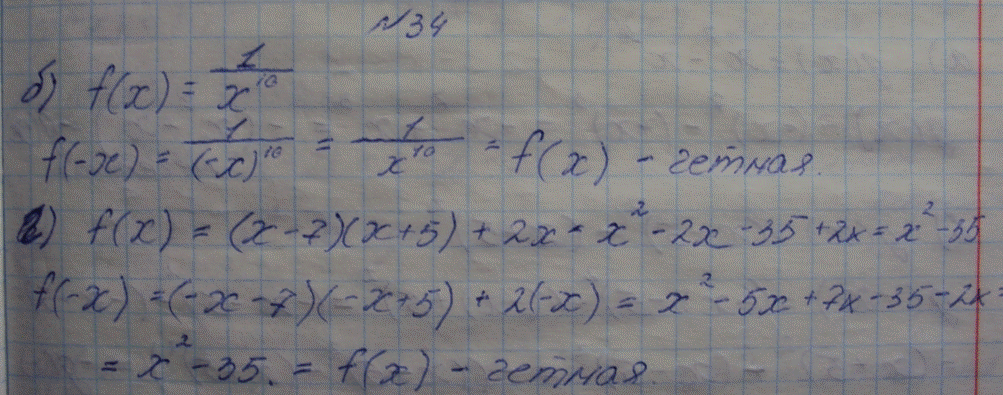 №34
б) f(x) = 1/x^10
f(-x) = 1/(-x)^10 = 1/x^10 = f(x) - четная.
г) f(x) = (x-7)(x+5) + 2x = x² - 2x - 35 + 2x = x² - 35
f(-x) = (-x-7)(-x+5) + 2(-x) = x² - 5x + 7x - 35 - 2x =
= x² - 35. = f(x) - четная.